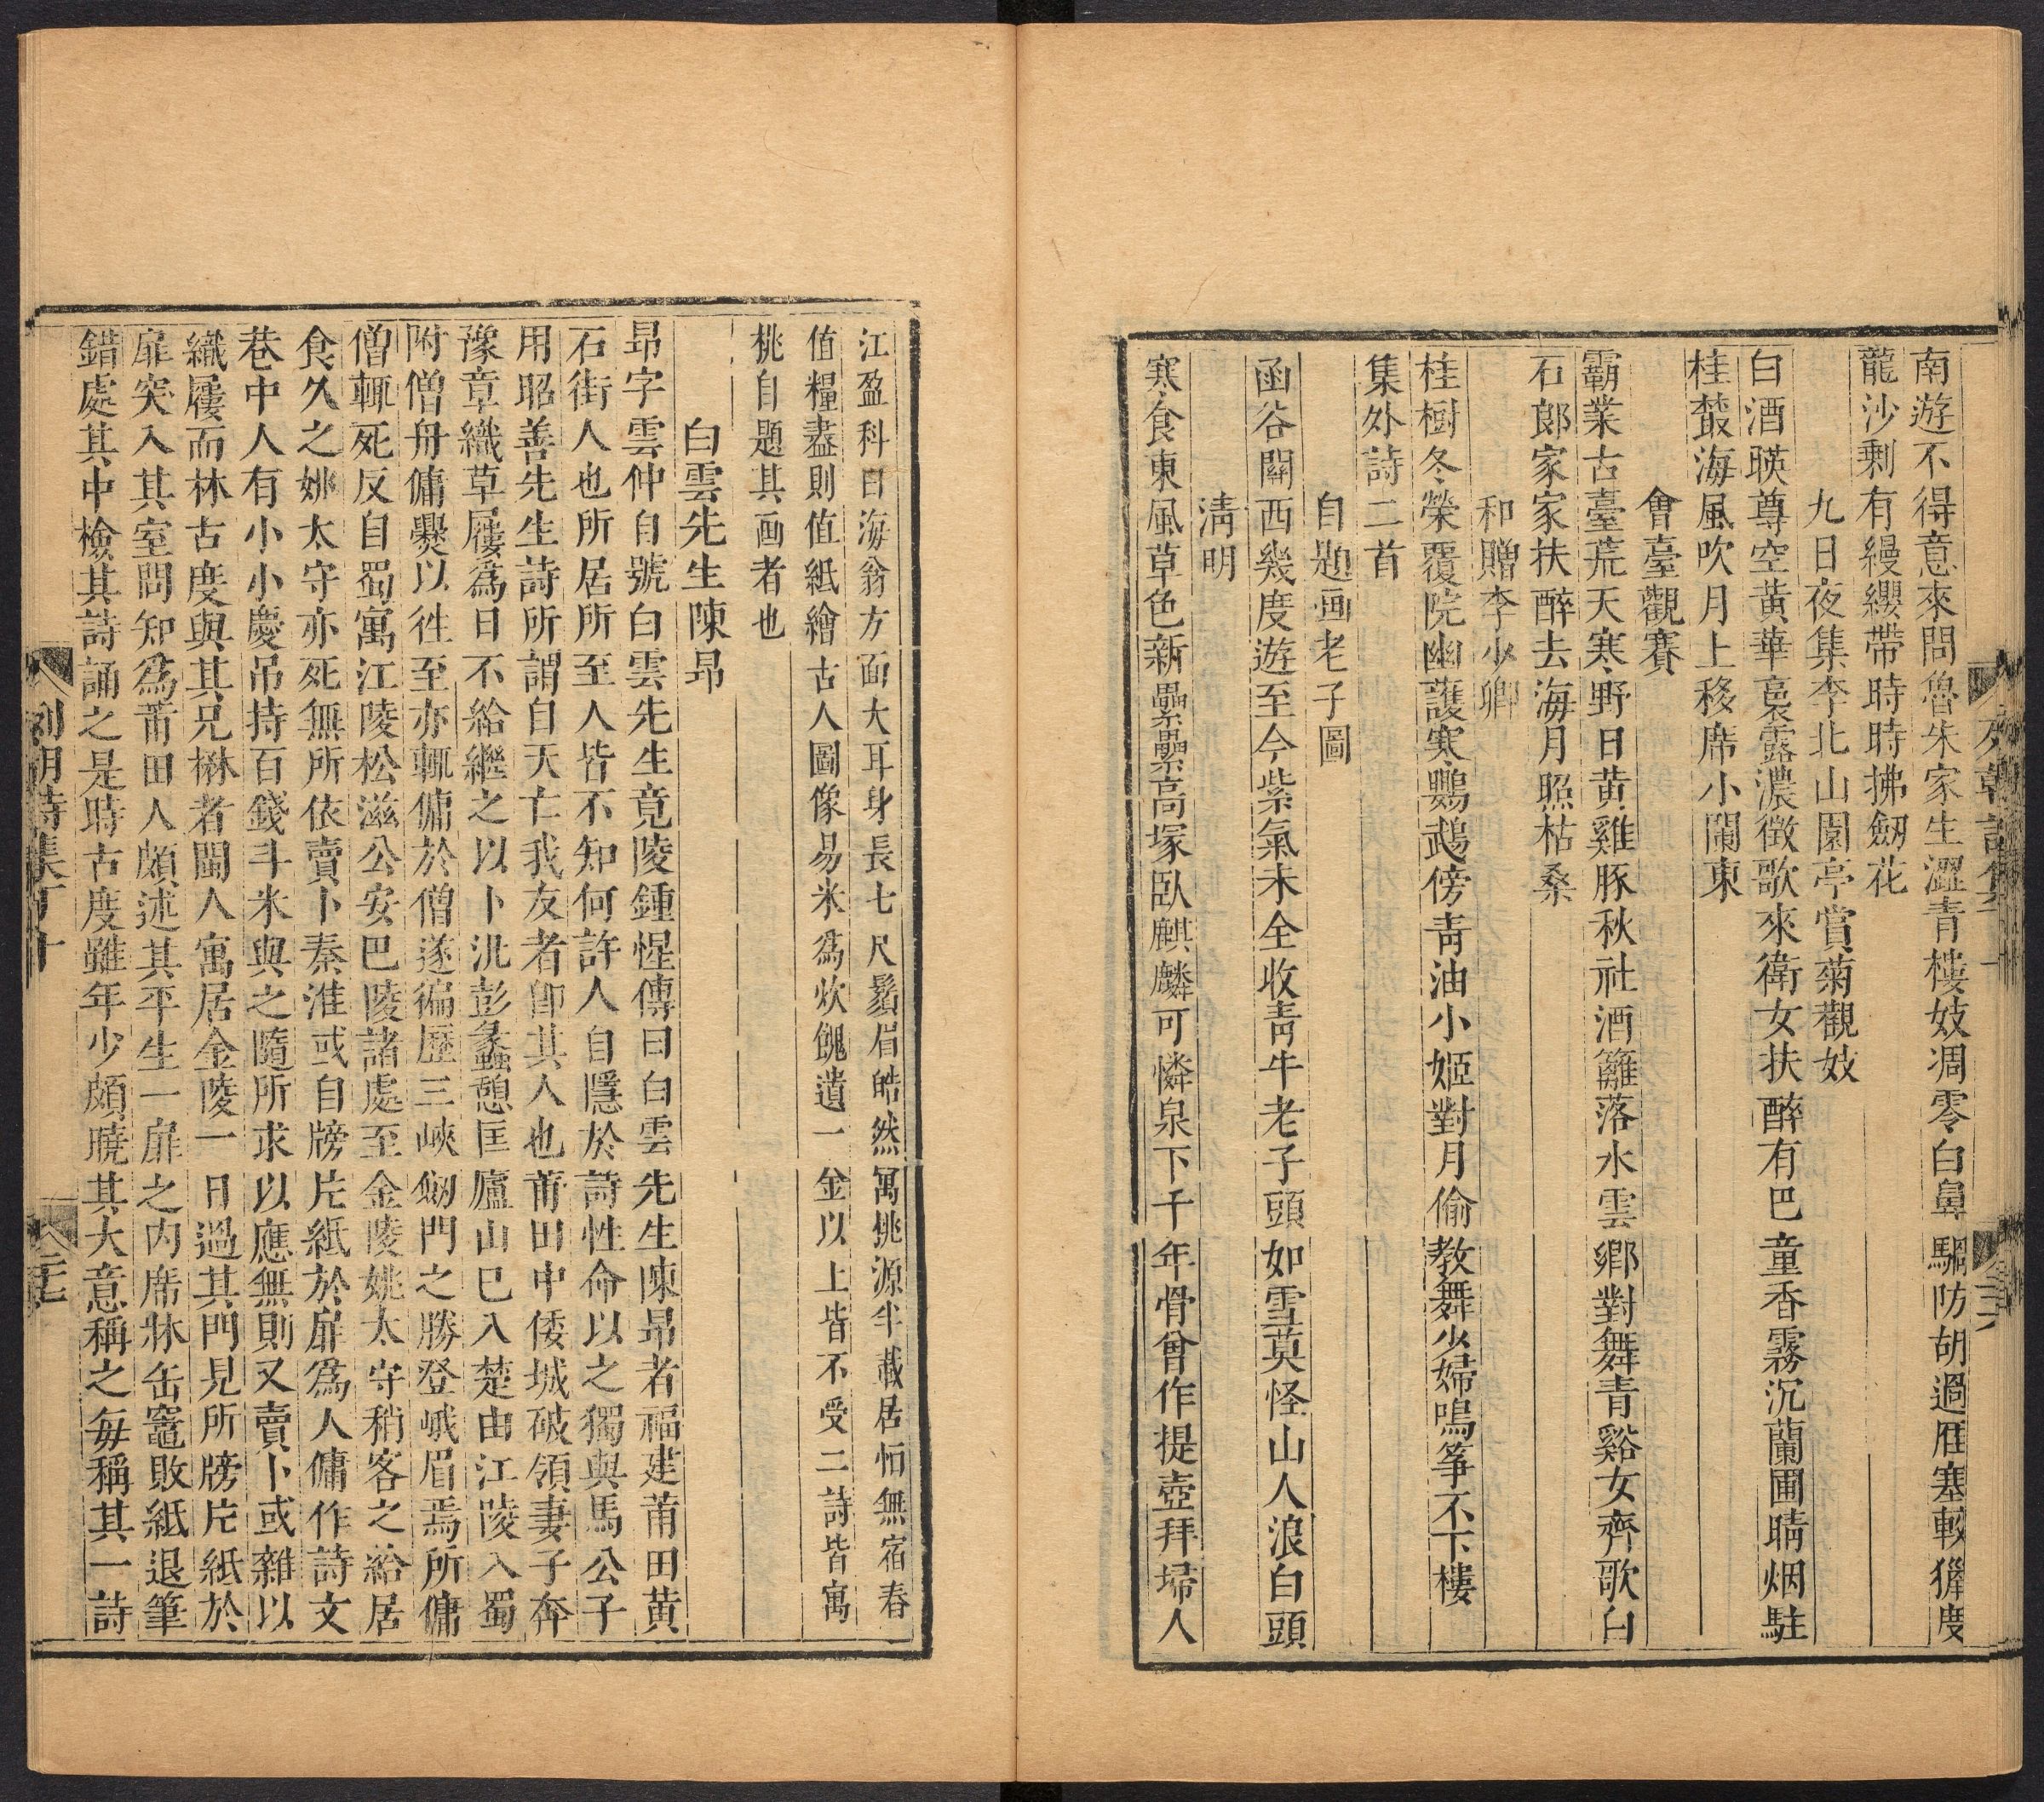 南遊不得意來問魯朱家生澀青樓妓凋零白鼻騧防胡過雁塞較獵度
龍沙剩有縵纓帶時時拂劒花
九日夜集李北山園亭賞菊觀妓
白酒暎尊空黃華裛露濃徴歌來衛女扶醉有巴童香霧沉蘭圃晴烟駐
桂叢海風吹月上移席小闌東
會臺觀賽
霸業古臺荒天寒野日黄雞豚秋社酒籬落水雲鄉對舞青谿女齊歌白
石郎家家扶醉去海月照枯桑
和贈李少卿
桂樹冬榮覆院幽護寒鸚鵡傍青油小姬對月偷教舞少婦鳴筝不下樓
集外詩二首
自題画老子圖
函谷關西幾度遊至今紫氣未全收青牛老子頭如雪莫怪山人浪白頭
淸明
寒食東風草色新纍纍高塚臥麒麟可憐泉下千年骨曾作提壺拜埽人
列朝詩集
江盈科曰海翁方面大耳身長七尺鬚眉皓然寓桃源半載居怕無宿舂
值糧盡則值紙繪古人圖像易米為炊餽遺一金以上皆不受二詩皆寓
桃自題其画者也
白雲先生陳昂
昂字雲仲自號白雲先生竟陵鍾惺傳曰白雲先生陳昂者福建莆田黄
石街人也所居所至人皆不知何許人自隱於詩性命以之獨與馬公子
用昭善先生詩所謂自天亡我友者卽其人也莆田中倭城破領妻子奔
豫章織草屨爲日不給繼之以卜汎彭蠡憩匡廬山巳入楚由江陵入蜀
附僧舟傭爨以徃至亦輒傭於僧遂徧歷三峽劒門之勝登峨眉焉所傭
僧輒死反自蜀寓江陵松滋公安巴陵諸處至金陵姚太守稍客之給居
食久之姚太守亦死無所依賣卜秦淮或自牓片紙於扉爲人傭作詩文
巷中人有小小慶吊持百錢斗米與之隨所求以應無則又賣卜或雜以
織屨而林古度與其兄楙者閩人寓居金陵一日過其門見所牓片紙於
扉突入其室問知爲莆田人頗述其平生一扉之內席牀缶竈敗紙退筆
錯處其中檢其詩誦之是時古度雖年少頗曉其大意稱之每稱其一詩
列朝詩集丁十